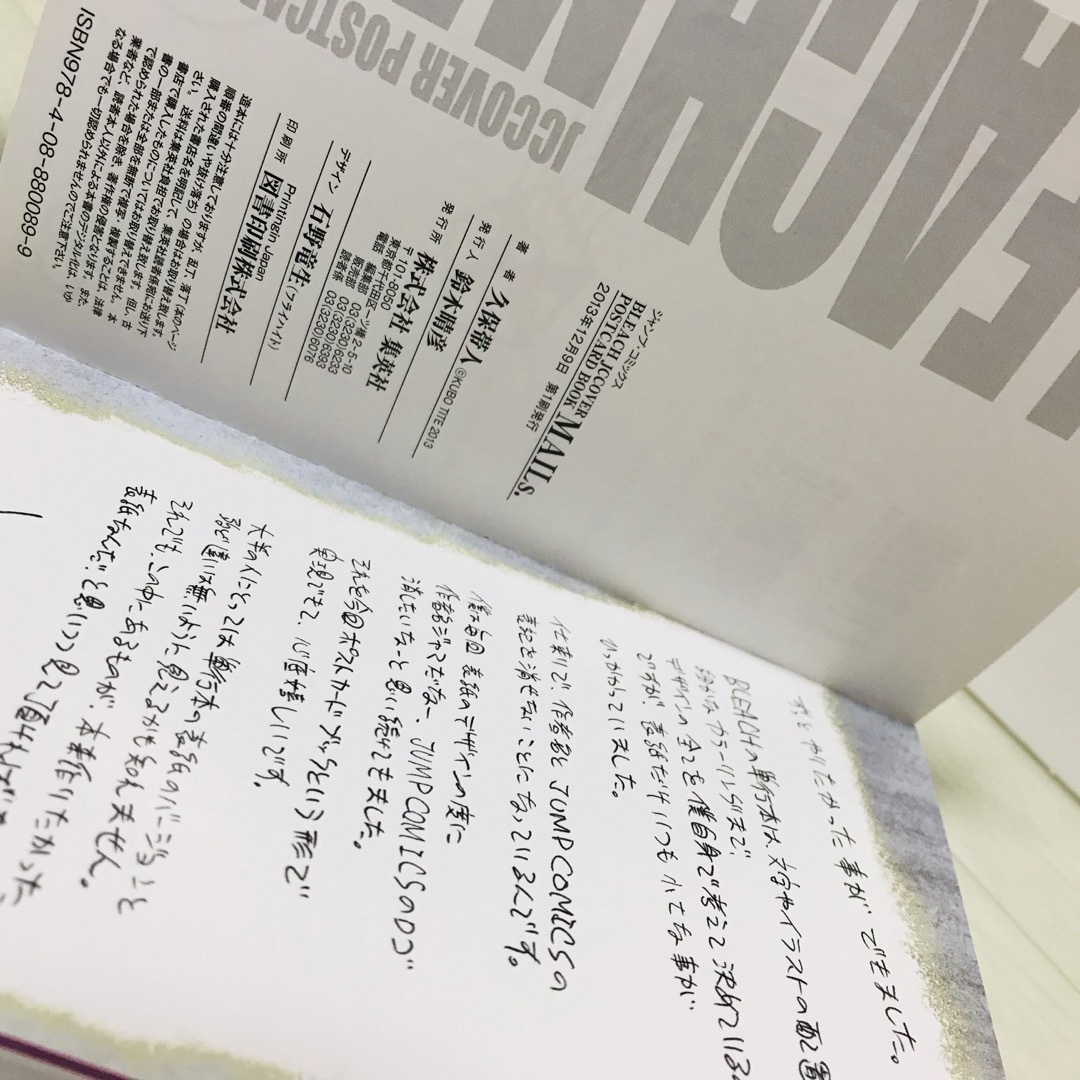 BLEACH
JCCOVER POSTCA
ジャンプ・コミックス
BLEACH JCCOVER
POSTCARD BOOK MAILS.
2013年12月9日 第1刷発行
著 者 久保帯人 ©KUBO TITE 2013
発行人 鈴木晴彦
発行所 株式会社 集英社
〒101-8050
東京都千代田区一ツ橋2-5-10
電話 編集部 03(3230)6233
販売部 03(3230)6393
読者係 03(3230)6076
デザイン 石野竜生(フライハイト)
印刷所 図書印刷株式会社
Printing in Japan
造本には十分注意しておりますが、乱丁、落丁(本のページ
順序の間違いや抜け落ち)の場合はお取り替え致します。
購入された書店名を明記して、集英社読者係宛にお送り下
さい。送料は集英社負担でお取り替え致します。但し、古
書店で購入したものについてはお取り替えできません。本
書の一部または全部を無断で複写、複製することは、法律
で認められた場合を除き、著作権の侵害となります。また、
業者など、読者本人以外による本書のデジタル化は、いか
なる場合でも一切認められませんのでご注意下さい。
ISBN978-4-08-880089-9
ずっとやりたかった事ができました。
BLEACHの単行本は、文字やイラストの配置
カラーリングまで
デザインの全てを僕自身で考えて決めている
ですが、表紙だけいつも小さな事が
ひっかかっていました。
仕様で、作者名とJUMP COMICSの
表記を消せないことになっているんです。
僕は毎回表紙のデザインの度に
作者名ジャマだなー、JUMP COMICSのロゴ
消したいなーと思い続けてきました。
それを今回ポストカードブックという形で
実現できて、心底嬉しいです。
大半の人にとっては単行本の表紙のバージョンと
殆ど違いは無いように見えるかも知れません。
それでも、この中にあるものが、本来作りたかった
表紙なんだと思いつつ見て頂ければ